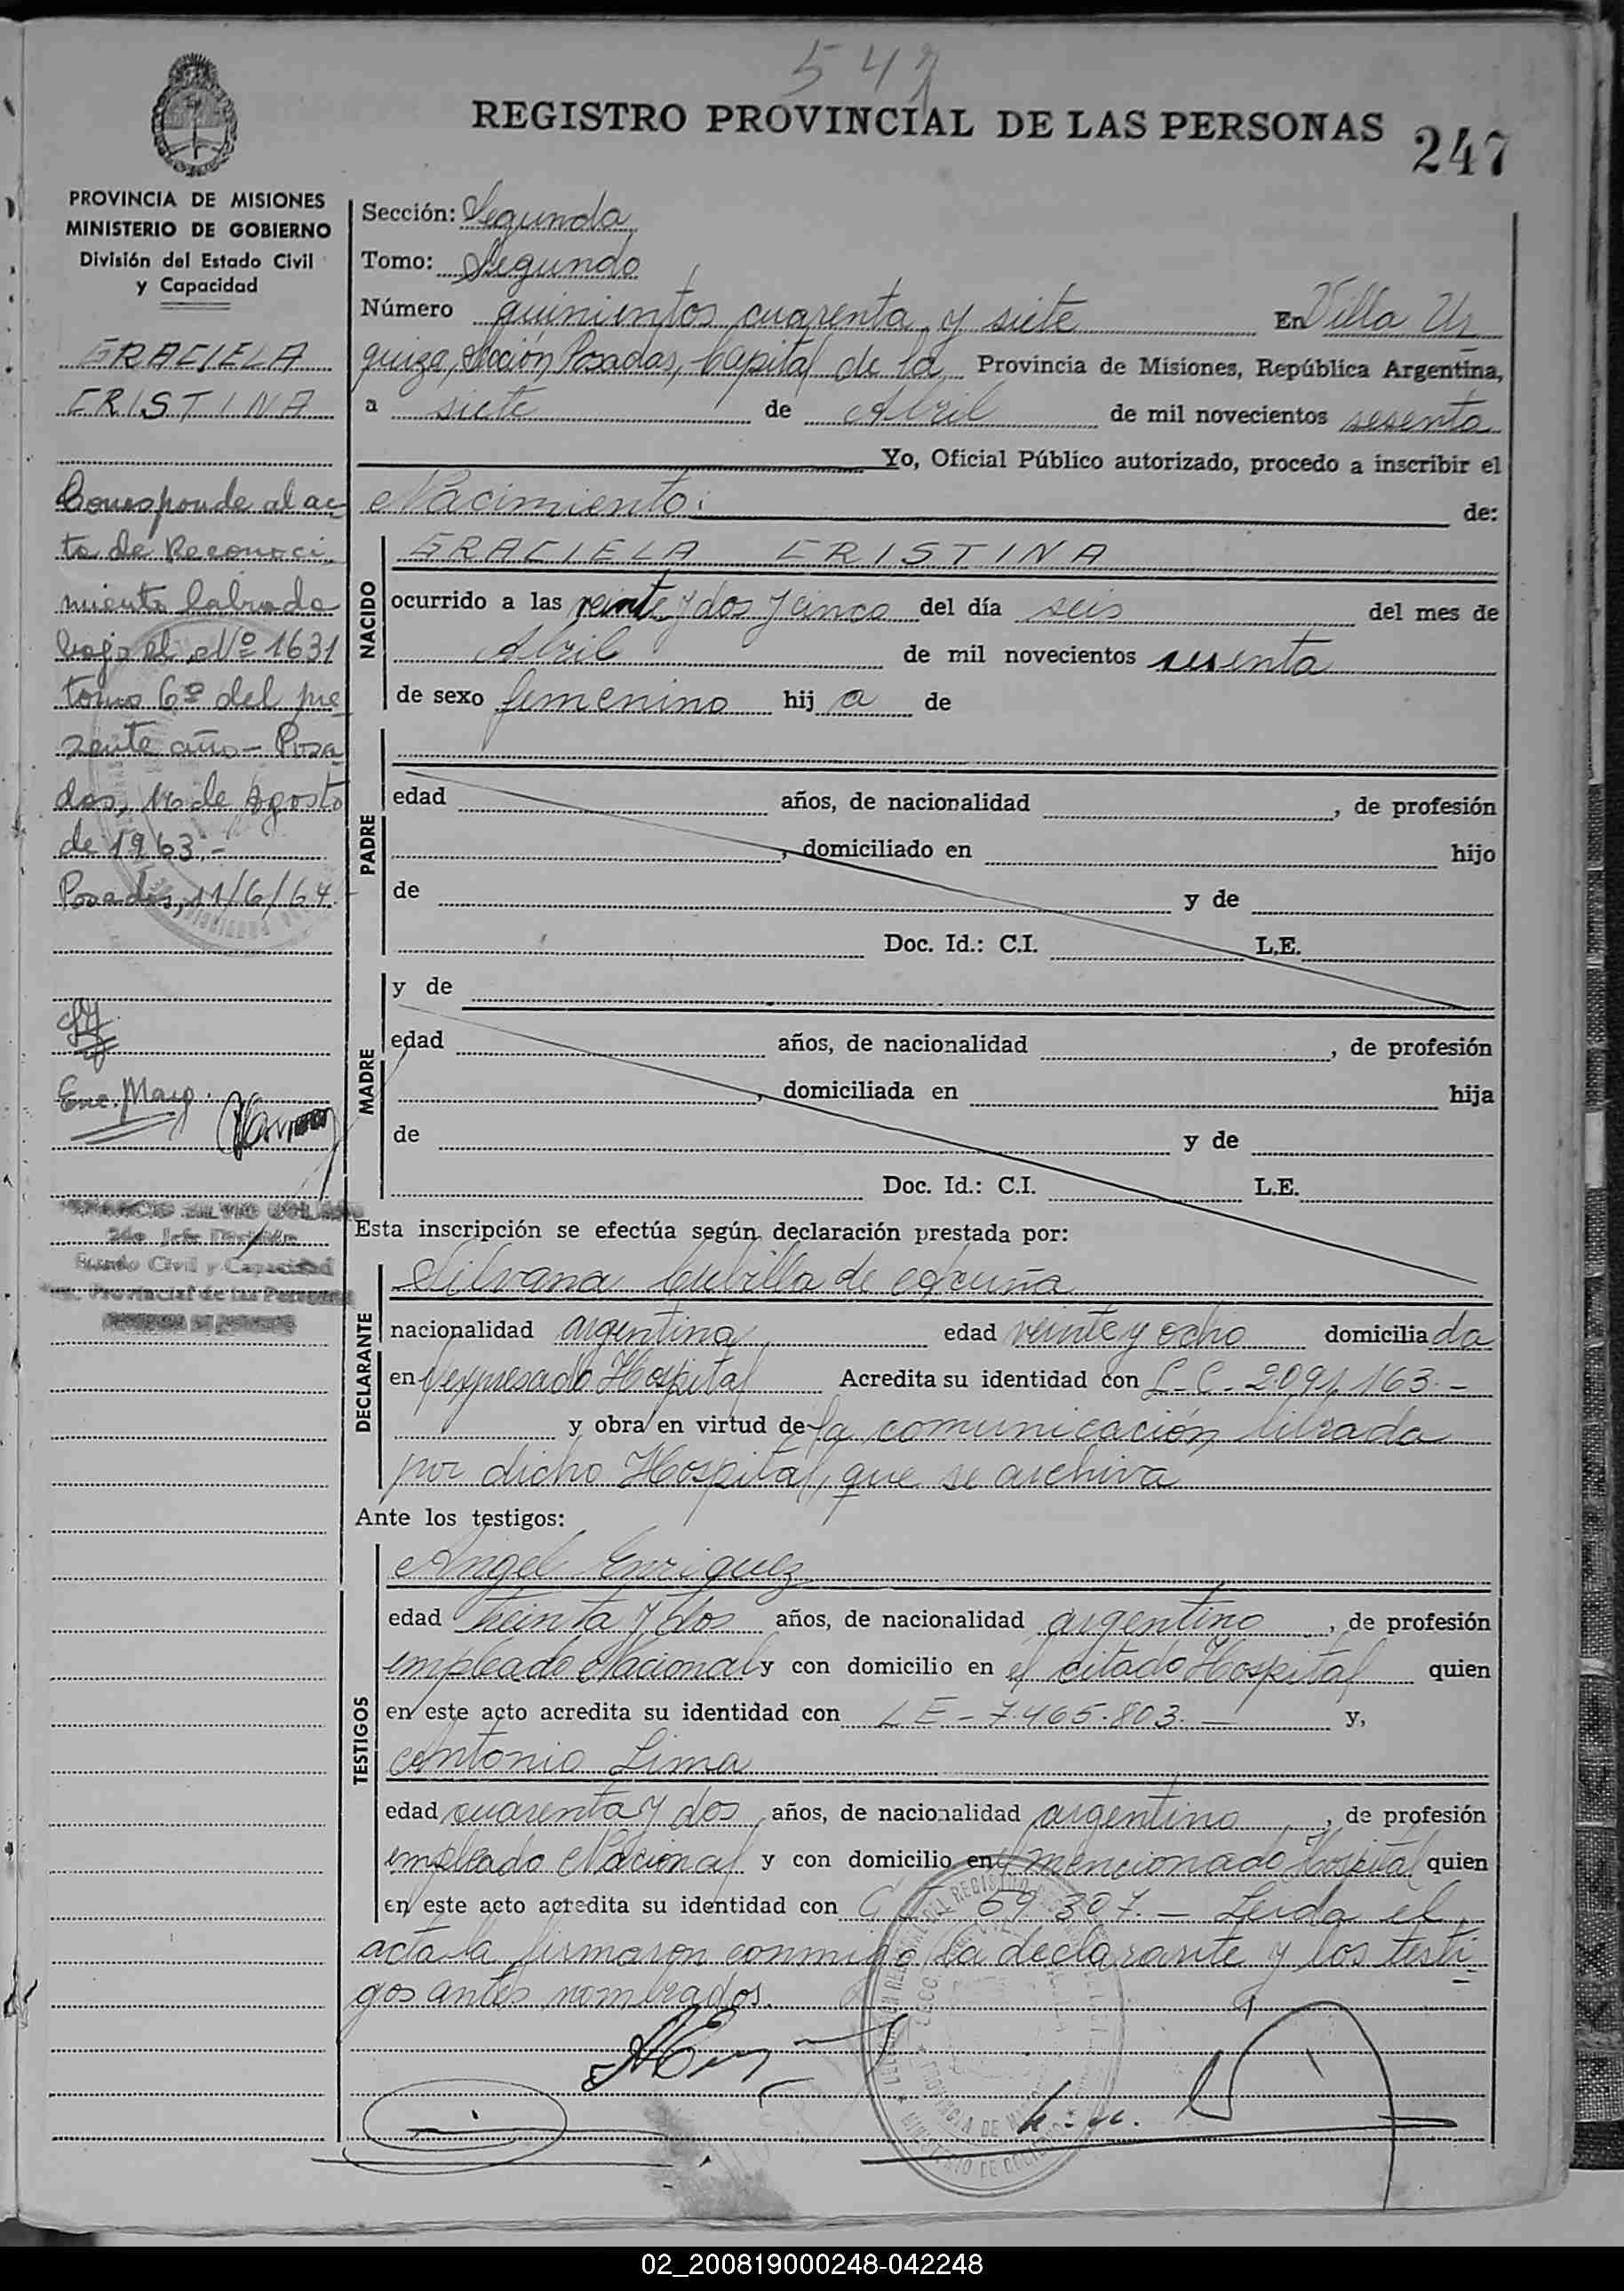 547
REGISTRO PROVINCIAL DE LAS PERSONAS
247
PROVINCIA DE MISIONES
MINISTERIO DE GOBIERNO
División del Estado Civil
y Capacidad
GRACIELA
CRISTINA
Corresponde al ac-
ta de Reconoci
miento labrado
bajo el Nº 1631
tomo 6º del pre
sente año - Posa
das, de Agosto
de 1963.-
Posadas, 11/6/64.
Enc. Marg.
2do. Jefe División
Estado Civil y Capacidad
Provincial de las Personas
Sección: Segunda
Tomo: Segundo
Número quinientos cuarenta y siete En Villa Ur
quiza, Sección Posadas, Capital de la Provincia de Misiones, República Argentina,
a siete de Abril de mil novecientos sesenta
Yo, Oficial Público autorizado, procedo a inscribir el
Nacimiento: de:
NACIDO
GRACIELA CRISTINA
ocurrido a las veinte y dos y cinco del día seis del mes de
Abril de mil novecientos sesenta
de sexo femenino hij a de
PADRE
edad años, de nacionalidad , de profesión
, domiciliado en hijo
de y de
Doc. Id.: C.I. L.E.
MADRE
y de
edad años, de nacionalidad , de profesión
, domiciliada en hija
de y de
Doc. Id.: C.I. L.E.
Esta inscripción se efectúa según declaración prestada por:
DECLARANTE
Silvana Cubilla de Acuña
nacionalidad argentina edad veinte y ocho domicilia da
en expresado Hospital Acredita su identidad con L-C- 2.091.163.-
y obra en virtud de la comunicación librada
por dicho Hospital, que se archiva
Ante los testigos:
TESTIGOS
Angel Enriquez
edad treinta y dos años, de nacionalidad argentino , de profesión
empleado Nacional y con domicilio en el citado Hospital quien
en este acto acredita su identidad con LE - 7.465.803.- y,
Antonio Lima
edad cuarenta y dos años, de nacionalidad argentino , de profesión
empleado Nacional y con domicilio en el mencionado Hospital quien
en este acto acredita su identidad con 59.307.- Leida el
acta la firmaron conmigo la declarante y los testi
gos antes nombrados.
02_200819000248-042248